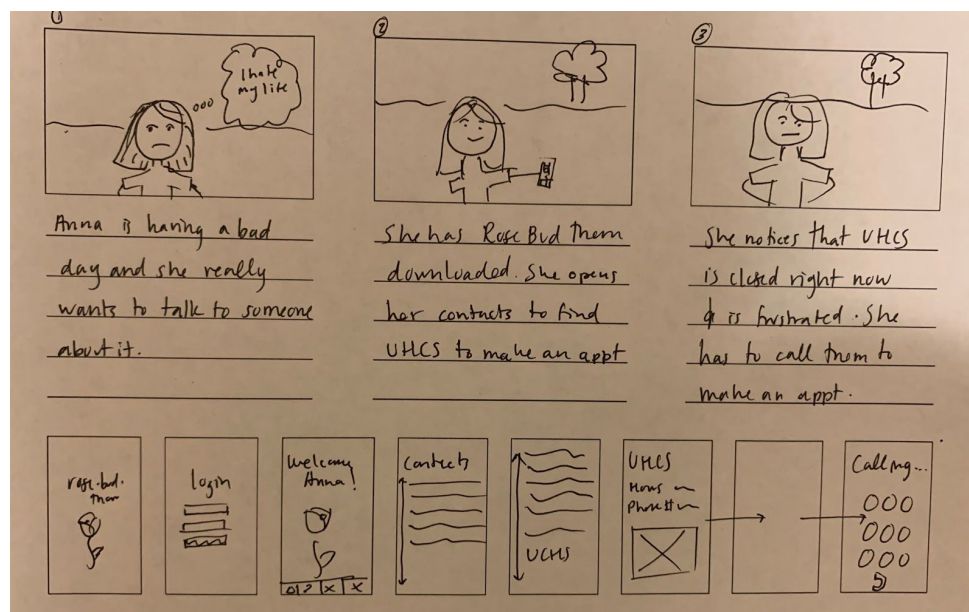 1
I hate
my life
Anna is having a bad
day and she really
wants to talk to someone
about it.
2
She has Rose Bud Thorn
downloaded. She opens
her contacts to find
UHCS to make an appt
3
She notices that UHCS
is closed right now
& is frustrated. She
has to call them to
make an appt.
rose.bud.
thorn
login
Welcome
Anna!
Contacts
UCHS
UHCS
Hours
Phone #
Calling...